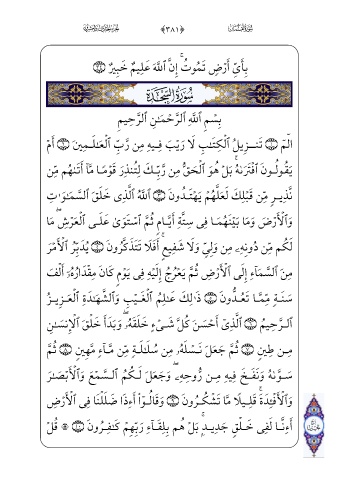 ﴿٣٨١﴾
بِأَيِّ أَرْضٍ تَمُوتُ ۚ إِنَّ ٱللَّهَ عَلِيمٌ خَبِيرٌ
سُورَةُ السَّجْدَةِ
بِسْمِ ٱللَّهِ ٱلرَّحْمَـٰنِ ٱلرَّحِيمِ
الٓمٓ ١ تَنزِيلُ ٱلْكِتَـٰبِ لَا رَيْبَ فِيهِ مِن رَّبِّ ٱلْعَـٰلَمِينَ ٢ أَمْ
يَقُولُونَ ٱفْتَرَىٰهُ ۚ بَلْ هُوَ ٱلْحَقُّ مِن رَّبِّكَ لِتُنذِرَ قَوْمًا مَّآ أَتَىٰهُم مِّن
نَّذِيرٍ مِّن قَبْلِكَ لَعَلَّهُمْ يَهْتَدُونَ ٣ ٱللَّهُ ٱلَّذِى خَلَقَ ٱلسَّمَـٰوَٰتِ
وَٱلْأَرْضَ وَمَا بَيْنَهُمَا فِى سِتَّةِ أَيَّامٍ ثُمَّ ٱسْتَوَىٰ عَلَى ٱلْعَرْشِ ۖ مَا
لَكُم مِّن دُونِهِۦ مِن وَلِىٍّ وَلَا شَفِيعٍ ۚ أَفَلَا تَتَذَكَّرُونَ ٤ يُدَبِّرُ ٱلْأَمْرَ
مِنَ ٱلسَّمَآءِ إِلَى ٱلْأَرْضِ ثُمَّ يَعْرُجُ إِلَيْهِ فِى يَوْمٍ كَانَ مِقْدَارُهُۥٓ أَلْفَ
سَنَةٍ مِّمَّا تَعُدُّونَ ٥ ذَٰلِكَ عَـٰلِمُ ٱلْغَيْبِ وَٱلشَّهَـٰدَةِ ٱلْعَزِيزُ
ٱلرَّحِيمُ ٦ ٱلَّذِىٓ أَحْسَنَ كُلَّ شَىْءٍ خَلَقَهُۥ ۖ وَبَدَأَ خَلْقَ ٱلْإِنسَـٰنِ
مِن طِينٍ ٧ ثُمَّ جَعَلَ نَسْلَهُۥ مِن سُلَـٰلَةٍ مِّن مَّآءٍ مَّهِينٍ ٨ ثُمَّ
سَوَّىٰهُ وَنَفَخَ فِيهِ مِن رُّوحِهِۦ ۖ وَجَعَلَ لَكُمُ ٱلسَّمْعَ وَٱلْأَبْصَـٰرَ
وَٱلْأَفْـِٔدَةَ ۚ قَلِيلًا مَّا تَشْكُرُونَ ٩ وَقَالُوٓا۟ أَءِذَا ضَلَلْنَا فِى ٱلْأَرْضِ
أَءِنَّا لَفِى خَلْقٍ جَدِيدٍۭ ۚ بَلْ هُم بِلِقَآءِ رَبِّهِمْ كَـٰفِرُونَ ١٠ ۞ قُلْ